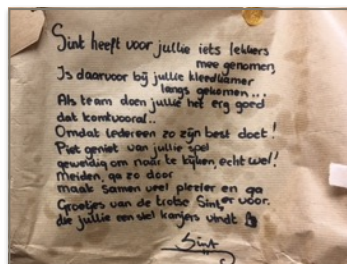 Sint heeft voor jullie iets lekkers
mee genomen,
Is daarvoor bij jullie kleedkamer
langs gekomen...
Als team doen jullie het erg goed
dat komt vooral..
Omdat iedereen zo zijn best doet!
Piet geniet van jullie spel
geweldig om naar te kijken, echt wel!
Meiden, ga zo door
maak samen veel plezier en ga
er voor.
Groetjes van de trotse Sint,
die jullie een stel kanjers vindt
Sint